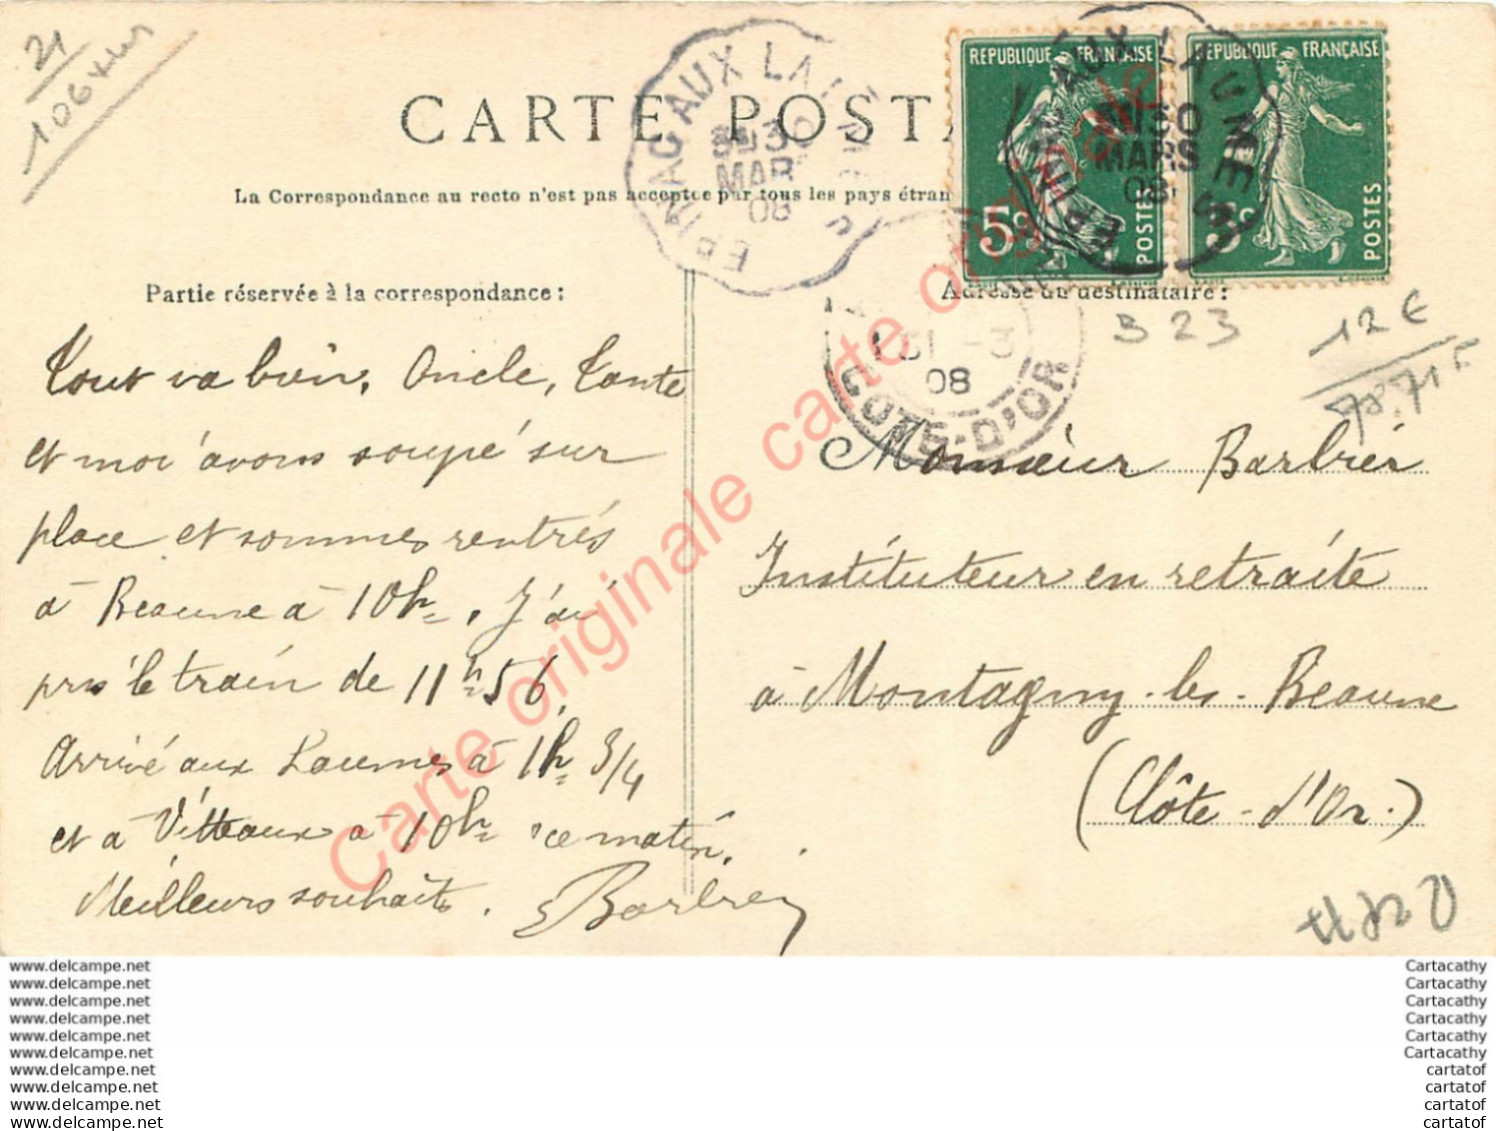 21
106
CARTE POSTA
La Correspondance au recto n'est pas acceptée par tous les pays étran
REPUBLIQUE FRANÇAISE
5c
POSTES
REPUBLIQUE FRANÇAISE
5c
POSTES
EPINAC AUX LAUMES
30
MAR
08
EPINAC AUX LAUMES
30
MARS
08
31 -3
08
COTE-D'OR
Partie réservée à la correspondance :
Adresse du destinataire :
B 23
12 €
78.71 F
Tout va bien, Oncle, Tante
et moi avons soupé sur
place et sommes rentrés
à Beaune à 10h. J'ai
pris le train de 11h56.
Arrivé aux Laumes à 1h 3/4
et à Vitteaux à 10h ce matin.
Meilleurs souhaits. Barbier
Monsieur Barbier
Instituteur en retraite
à Montagny-les-Beaune
(Côte-d'Or.)
Carte originale carte originale
www.delcampe.net
www.delcampe.net
www.delcampe.net
www.delcampe.net
www.delcampe.net
www.delcampe.net
www.delcampe.net
www.delcampe.net
www.delcampe.net
www.delcampe.net
Cartacathy
Cartacathy
Cartacathy
Cartacathy
Cartacathy
Cartacathy
cartatof
cartatof
cartatof
cartatof